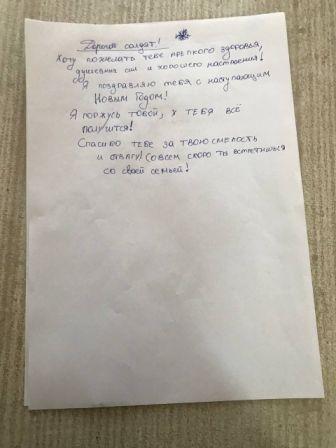 Дорогой солдат!
Хочу пожелать тебе крепкого здоровья,
душевных сил и хорошего настроения!
Я поздравляю тебя с наступающим
Новым Годом!
Я горжусь тобой, у тебя всё
получится!
Спасибо тебе за твою смелость
и отвагу! Совсем скоро ты встретишься
со своей семьей!